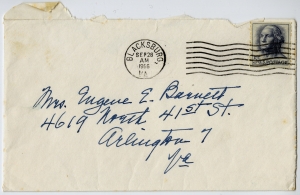 BLACKSBURG,
SEP 28
AM
1966
VA.
Mrs. Eugene E. Barnett
4619 North 41st St.
Arlington 7
Va